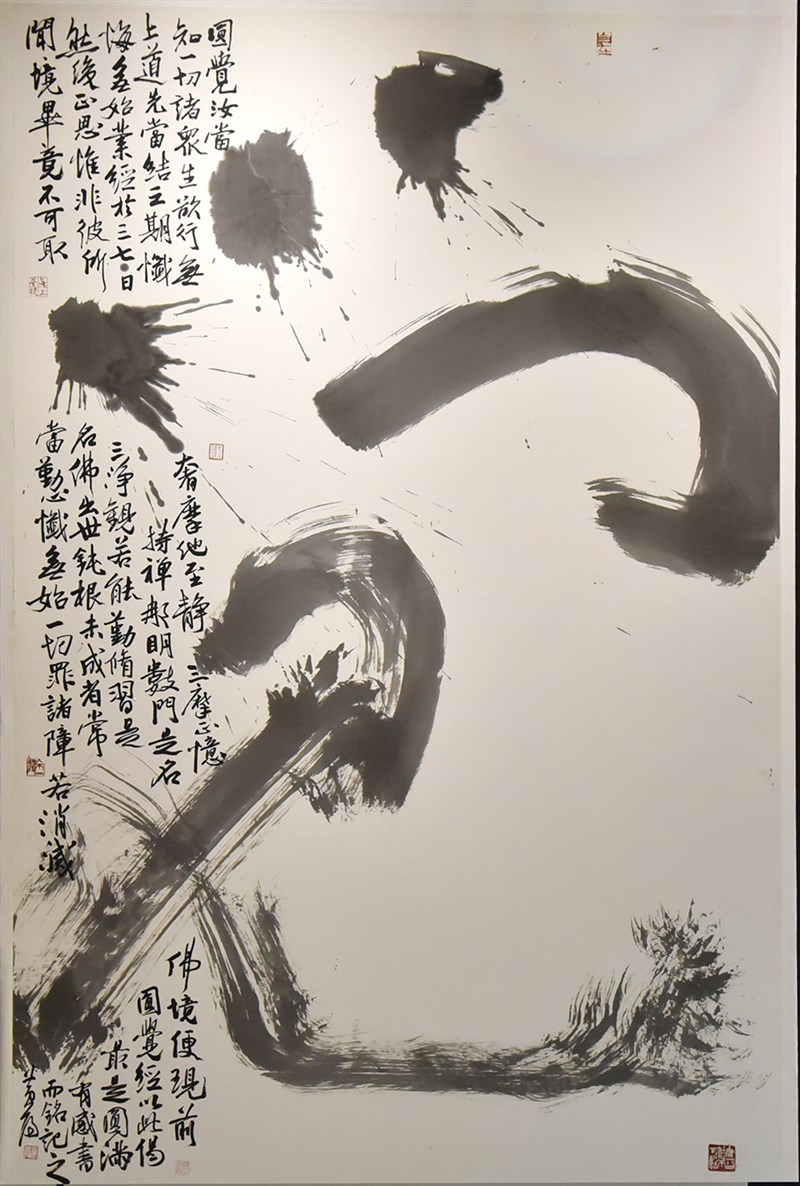 圓覺汝當
知一切諸眾生欲行無
上道先當結三期懺
悔無始業經於三七日
然後正思惟非彼所
聞境畢竟不可取
奢摩他至靜 三摩正憶
持禪那明數門是名
三淨觀若能勤修習是
名佛出世鈍根未成者常
當勤心懺無始一切罪諸障若消滅
佛境便現前
圓覺經以此偈
最是圓滿
有感書
而銘記之